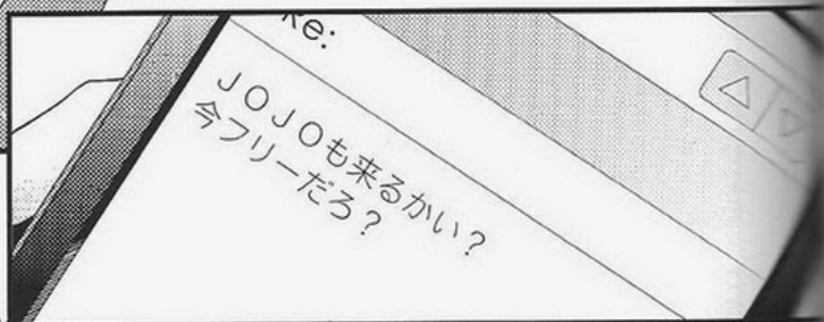 Re:
JOJOも来るかい？
今フリーだろ？